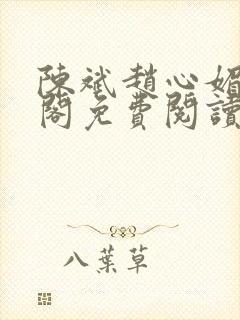 陳斌趙心媚
閣免費閱讀
八葉草